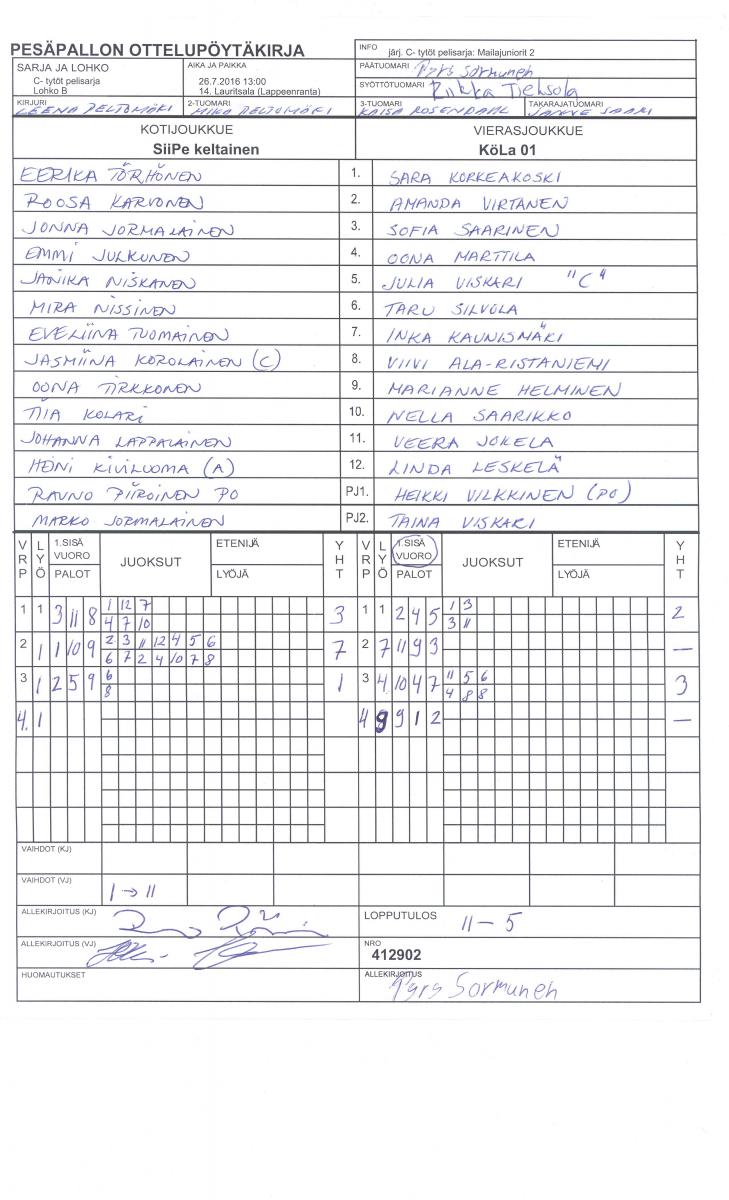 PESÄPALLON OTTELUPÖYTÄKIRJA
INFO järj. C- tytöt pelisarja: Mailajuniorit 2
SARJA JA LOHKO
C- tytöt pelisarja
Lohko B
AIKA JA PAIKKA
26.7.2016 13:00
14. Lauritsala (Lappeenranta)
PÄÄTUOMARI Pyry Sormunen
SYÖTTÖTUOMARI Riikka
KIRJURI LEENA PELTOMÄKI
2-TUOMARI MIKA PELTOMÄKI
3-TUOMARI KAISA ROSENDAHL
TAKARAJATUOMARI JANNE SAARI
KOTIJOUKKUE VIERASJOUKKUE
SiiPe keltainen KöLa 01
EERIKA TÖRHÖNEN 1. SARA KORKEAKOSKI
ROOSA KARVONEN 2. AMANDA VIRTANEN
JONNA JORMALAINEN 3. SOFIA SAARINEN
EMMI JULKUNEN 4. OONA MARTTILA
JANIKA NISKANEN 5. JULIA VISKARI "C"
MIRA NISSINEN 6. TARU SILVOLA
EVELIINA TUOMAINEN 7. INKA KAUNISMÄKI
JASMIINA KOROLAINEN (C) 8. VIIVI ALA-RISTANIEMI
OONA TIRKKONEN 9. MARIANNE HELMINEN
TIIA KOLARI 10. NELLA SAARIKKO
JOHANNA LAPPALAINEN 11. VEERA JOKELA
HEINI KIVILUOMA (A) 12. LINDA LESKELÄ
RAUNO PIIROINEN PO PJ1. HEIKKI VILKKINEN (PO)
MARKO JORMALAINEN PJ2. TAINA VISKARI
VRP LYÖ 1.SISÄ VUORO PALOT JUOKSUT ETENIJÄ LYÖJÄ YHT VRP LYÖ 1.SISÄ VUORO PALOT JUOKSUT ETENIJÄ LYÖJÄ YHT
1 1 3 11 8 1 12 7 3 1 1 2 4 5 1 3 2
4 7 10 3 11
2 1 1 10 9 2 3 11 12 4 5 6 7 2 7 11 9 3 —
6 7 2 4 10 7 8
3 1 2 5 9 6 1 3 4 10 4 7 11 5 6 3
8 4 8 8
4. 1 4 8 9 1 2 —
VAIHDOT (KJ)
VAIHDOT (VJ) 1 → 11
ALLEKIRJOITUS (KJ)
LOPPUTULOS 11 – 5
ALLEKIRJOITUS (VJ)
NRO
412902
HUOMAUTUKSET
ALLEKIRJOITUS Pyry Sormunen